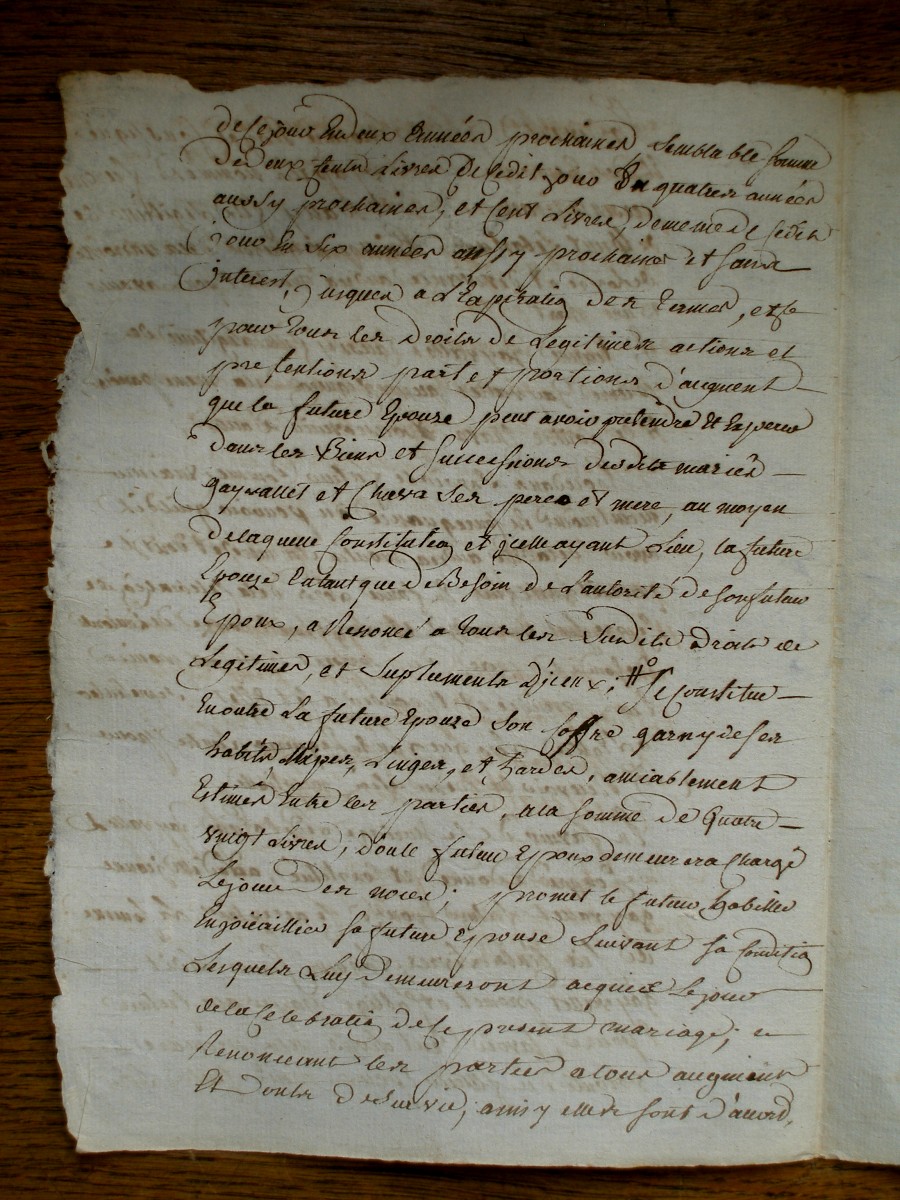 de ce jour En deux années prochaines semblable somme
de deux cents Livres De cedit jour En quatre années
aussy prochaines, et Cent Livres, de meme de cedit
jour En Six années aussy prochaine et sans
jnterest, jusques a L'Expiration des termes, et ce
pour tous les Droits de Legitimes actions et
pretentions part et portions d'augment
que la future Epouze peut avoir pretendre Et Esperer
dans les Biens et successions desdits mariés
gayvallet et Chava Ses pere et mere, au moyen
de laquelle Constitution et jcelle ayant Lieu, la future
Epouze Entant que de Besoin de L'autorité de son futur
Epoux, a Renoncé a tous les Susdits droits de
Legitimes, et Suplements D'jceux, Se Constitue
En outre La future Epouze Son Coffre garny de ses
habits Nipes, Linges, et hardes, amiablement
Estimés Entre les parties, a la somme de Quatre
vingt Livres, dont le futur Epoux demeurera Chargé
Le jour des noces; promet le futur, habiller
Enjoüaillier sa future Epouse Suivant sa Condition
Lesquels Luy Demeureront acquis Le jour
de la Celebration de ce present mariage;
Renonceant les parties a tous augment
Et de survie, ainsy elles sont d'accord,